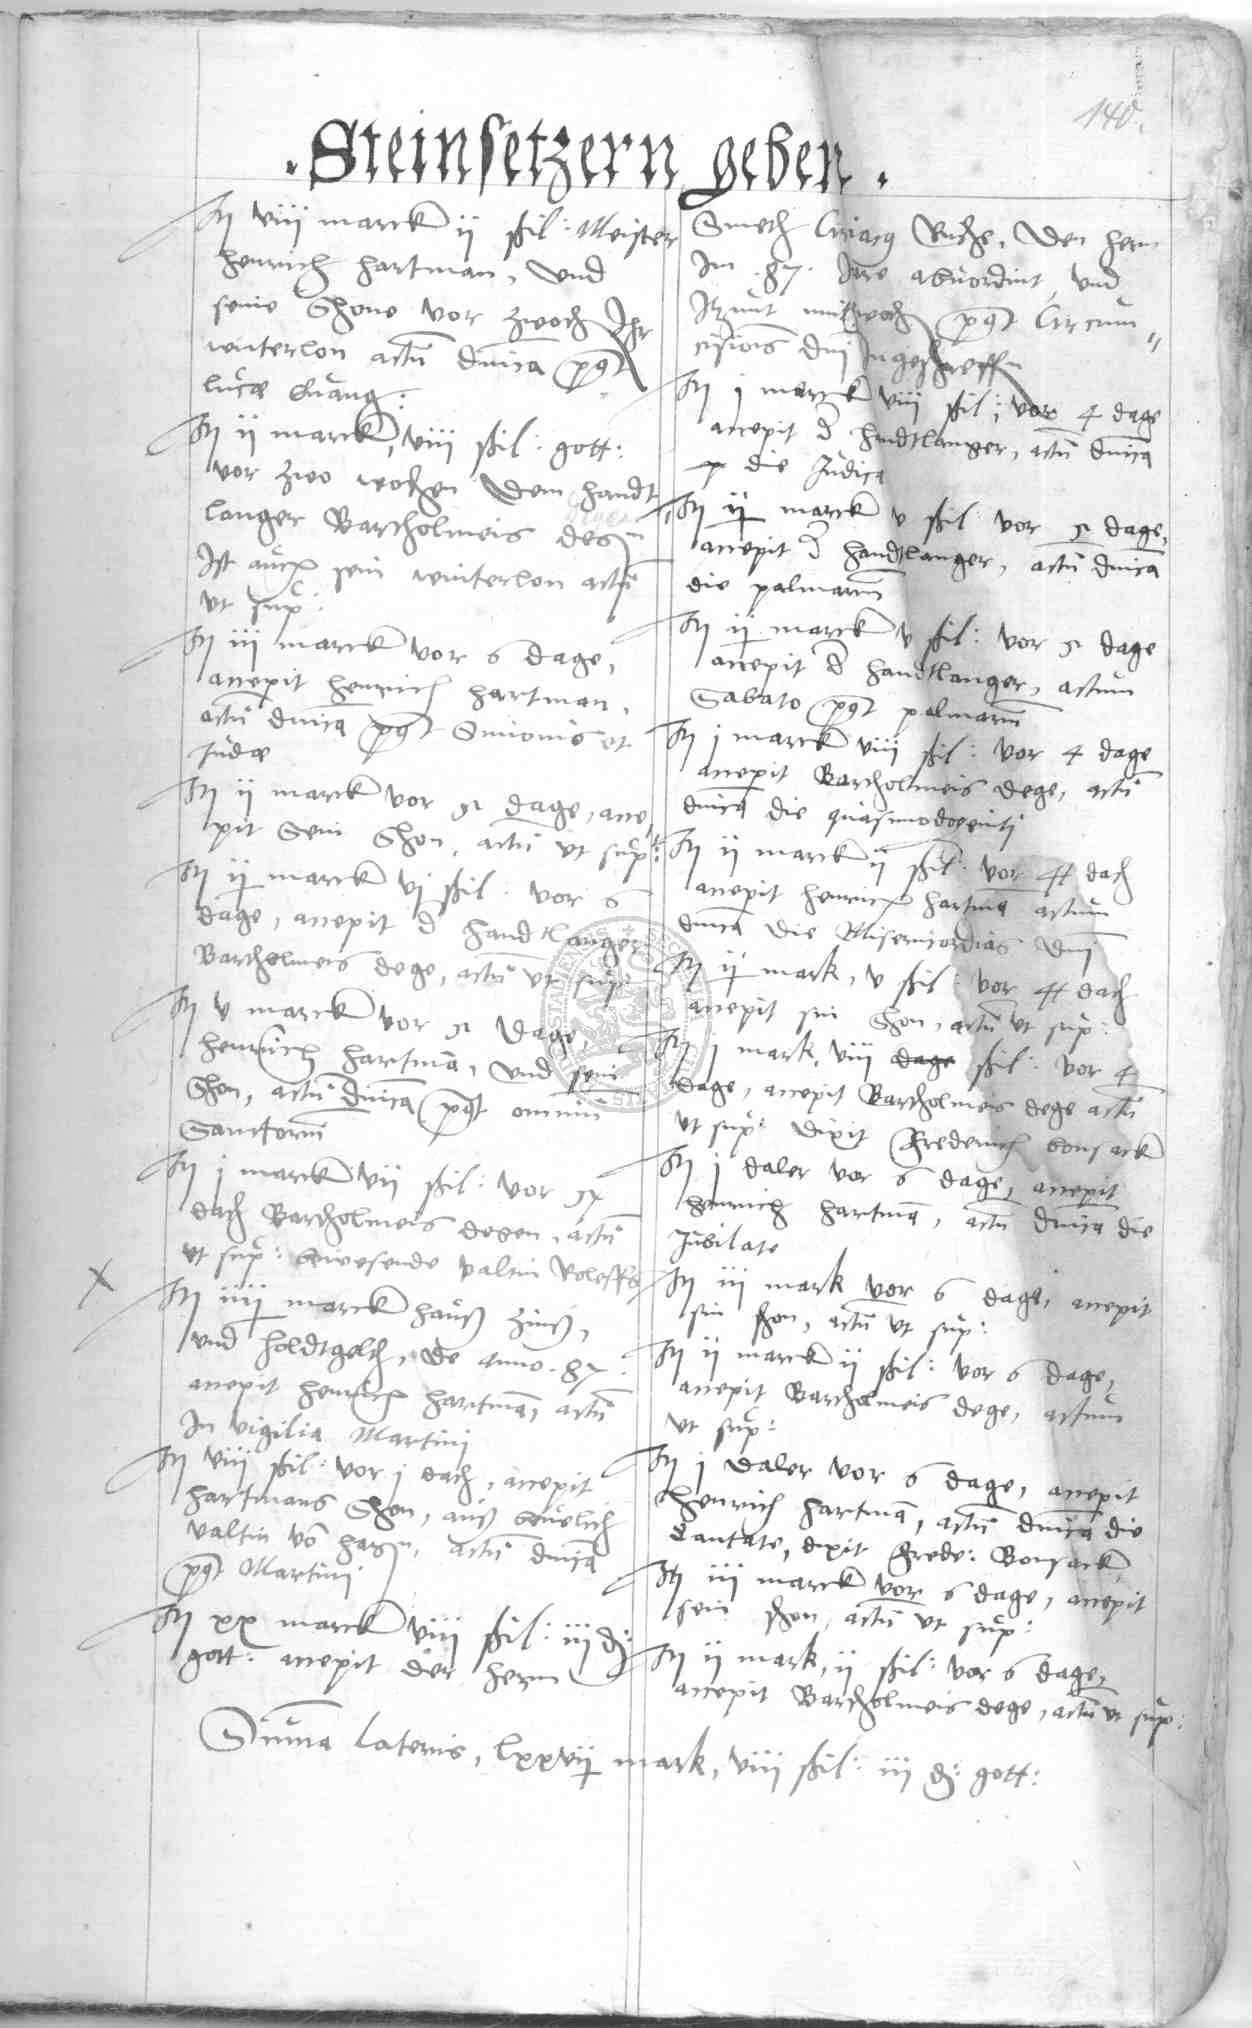 140.
. Steinsetzern geben .
It viii marck ii ßil: Meister
Henrich Hartman, und
seine Shone vor zwoch Ihr
winterlon actu dnica post
luce Evang:
It ii marck, viii ßil: gott:
vor zwo wochen dem handt
langer Bartholmeis
Ist auch sein winterlon actu
ut sup:
It iii marck vor 6 dage,
accepit Henrich Hartman,
actu dnica post Simonis et
Jude
It ii marck vor 5 dage, acce
pit Sein Shon, actu ut sup:
It ii marck vj ßil: vor 6
dage, accepit d handtlanger
Bartholmeis dege, actu ut sup
It v marck vor 5 dage,
Henrich Hartma, und sein
Shon, actu dnica post omniu
Sanctorum
It j marck vii ßil: vor
dach Bartholmeis degen, actu
ut sup: valtin
It iiij marck hauß zinß,
und holdtgelth, de anno .87.
accepit Henrich Hartma, actu
In vigilia Martini
It viii ßil: vor j dach, accepit
Hartmans Shon, auß bevelich
valtin vo actu dnica
post Martini
It xx marck viii ßil: iii d:
gott: accepit der herrn
Smeth Ciriacy Den herrn
Im .87. Jare und
Itzunt mitwoch post Circum"
cisiois dni
It j marck viii ßil: vor 4 dage
accepit d handtlanger, actu dnica
die Judica
It ii marck v ßil vor 5 dage,
accepit d handtlanger, actu dnica
die palmarum
It ii marck v ßil: vor 5 dage
accepit d handtlanger, actum
Sabato post palmarum
It j marck viii ßil: vor 4 dage
accepit Bartholmeis dege, actu
dnica die quasimodogeniti
It ii marck ii ßil: vor 4 dach
accepit Henrich Hartma actum
dnica die Misericordias dni
It ii mark, v ßil: vor 4 dach
accepit sin Shon, actu ut sup:
It j mark, viii dage ßil: vor 4
dage, accepit Bartholmeis dege actu
ut sup: dixit Frederich bonsack
It j daler vor 6 dage, accepit
Henrich Hartma, actu dnica die
Jubilate
It iii mark vor 6 dage, accepit
sin shon, actu ut sup:
It ii marck ii ßil: vor 6 dage,
accepit Bartholmeis dege, actum
ut sup:
It j daler vor 6 dage, accepit
Henrich Hartma, actu dnica die
Cantate, dixit Frede: Bonsack
It iii marck vor 6 dage, accepit
sein shon, actu ut sup:
It ii mark, ii ßil: vor 6 dage,
accepit Bartholmeis dege, actu ut sup:
Summa lateris, lxxvij mark, viii ßil: iii d: gott: